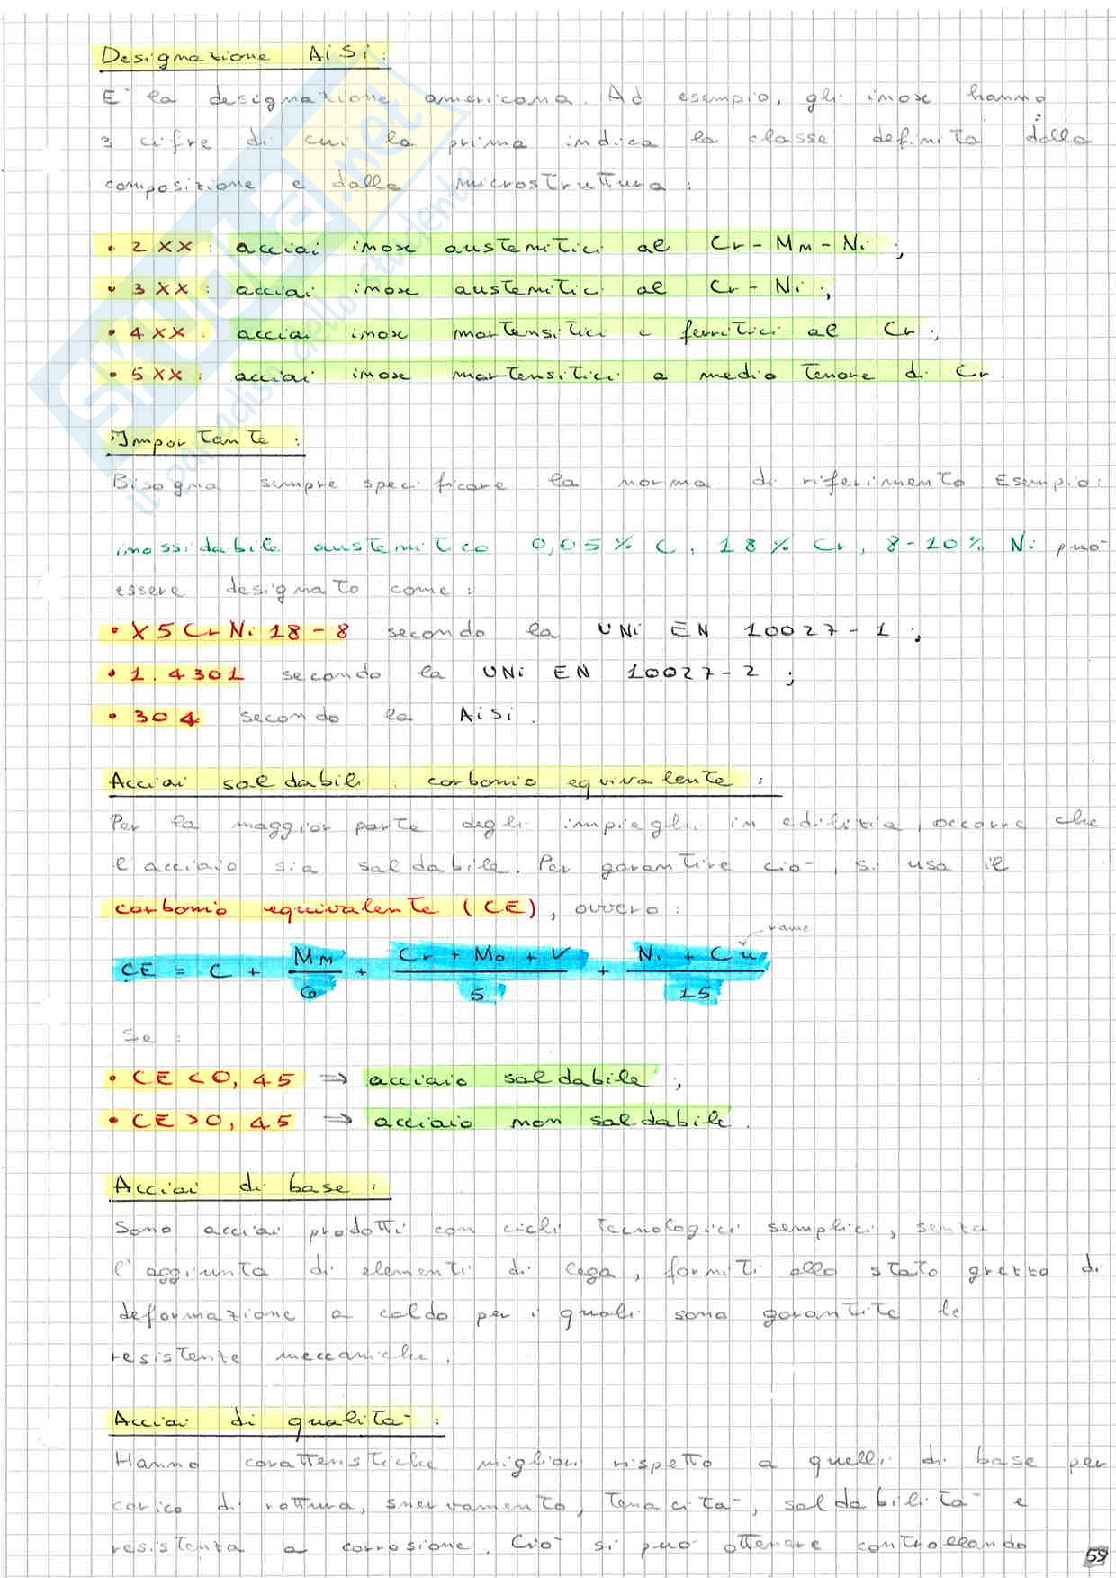 Designazione AiSi:
E' la designazione americana. Ad esempio, gli inox hanno
3 cifre di cui la prima indica la classe definita dalla
composizione e dalla microstruttura:
• 2XX: acciai inox austenitici al Cr-Mn-Ni;
• 3XX: acciai inox austenitici al Cr-Ni;
• 4XX: acciai inox martensitici e ferritici al Cr;
• 5XX: acciai inox martensitici a medio tenore di Cr
Importante:
Bisogna sempre specificare la norma di riferimento Esempio:
inossidabile austenitico 0,05% C, 18% Cr, 8-10% Ni può
essere designato come:
• X5CrNi 18-8 secondo la UNi EN 10027-1;
• 1.4301 secondo la UNi EN 10027-2;
• 304 secondo la AiSi.
Acciai saldabili: carbonio equivalente:
Per la maggior parte degli impieghi in edilizia, occorre che
l'acciaio sia saldabile. Per garantire ciò si usa il
carbonio equivalente (CE), ovvero:
rame
CE = C + Mn/6 + (Cr + Mo + V)/5 + (Ni + Cu)/15
Se:
• CE<0,45 ⇒ acciaio saldabile;
• CE>0,45 ⇒ acciaio non saldabile.
Acciai di base:
Sono acciai prodotti con cicli tecnologici semplici, senza
l'aggiunta di elementi di lega, forniti allo stato grezzo di
deformazione a caldo per i quali sono garantite le
resistenze meccaniche.
Acciai di qualità:
Hanno caratteristiche migliori rispetto a quelli di base per
carico di rottura, snervamento, tenacità, saldabilità e
resistenza a corrosione. Ciò si può ottenere controllando
59
SKUOLA.net
il paradiso dello studente